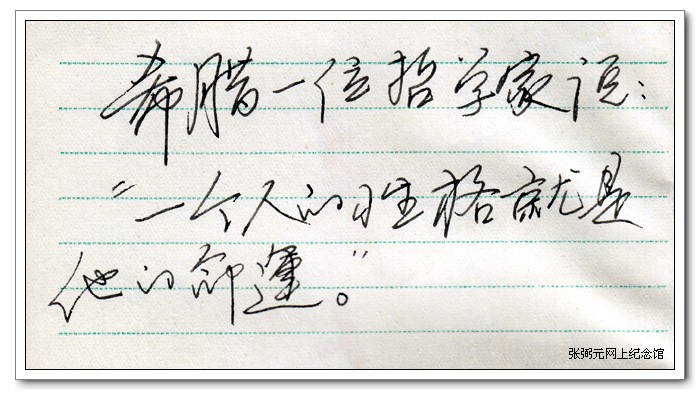 希腊一位哲学家说：
“一个人的性格就是
他的命運。”
张弼元网上纪念馆